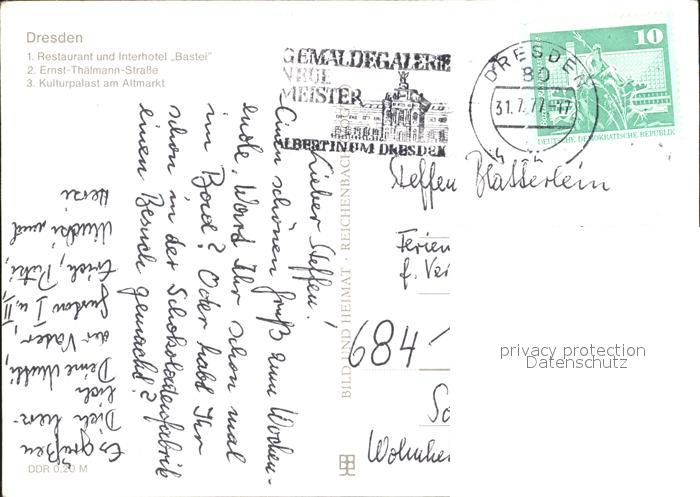 Dresden
1. Restaurant und Interhotel „Bastei"
2. Ernst-Thälmann-Straße
3. Kulturpalast am Altmarkt
GEMÄLDEGALERIE
NEUE
MEISTER
ALBERTINUM DRESDEN
DRESDEN
80
31.7.77-17
10
DEUTSCHE DEMOKRATISCHE REPUBLIK
Lieber Steffen!
Einen schönen Gruß zum Wochen-
ende. Ward Ihr schon mal
im Bad? Oder habt Ihr
schon in der Schokoladenfabrik
einen Besuch gemacht?
Es grüßen
Dich herz-
lich
Deine Mutti,
der Vater,
Gustav I u. II,
Erich, Putzi,
und
BILD UND HEIMAT · REICHENBACH
Steffen Blätterlein
Ferien
f. Ver
684
So
Wohnhe
DDR 0,20 M
privacy protection
Datenschutz